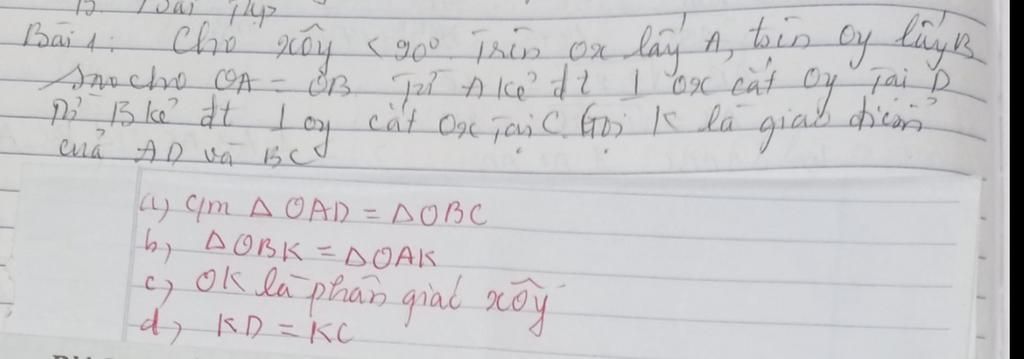 Bài 1: Cho xôy < 90° Trên Ox lấy A, trên Oy lấy B
Sao cho OA = OB Từ A kẻ đt ⊥ Ox cắt Oy Tại D
Từ B kẻ đt ⊥ Oy cắt Ox Tại C. Gọi K là giao điểm
của AD và BC
a) C/m △OAD = △OBC
b) △OBK = △OAK
c) OK là phân giác xôy
d) KD = KC